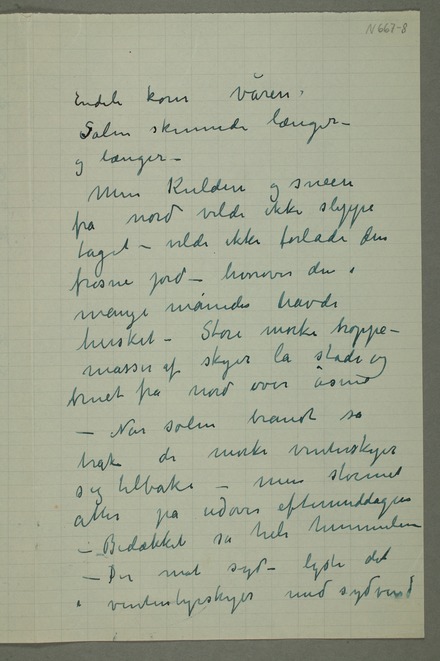 N 667-8
Endeli kom våren.
Solen skinnede længer –
og længer –
Men Kulden og sneen
fra nord vilde ikke slippe
taget – vilde ikke forlade den
frosne jord – hvorover den i
mange måneder havde
hersket – Store mørke troppe-
masser af skyer lå stade og
truet fra nord over åsene
– Når solen brandt så
trak de mørke vinterskyer
sig tilbake – men stormet
atter på udover eftermiddagen
– Bedækket så hele himmelen
– Der mot syd – lyste det
i vinterskyer med sydvind